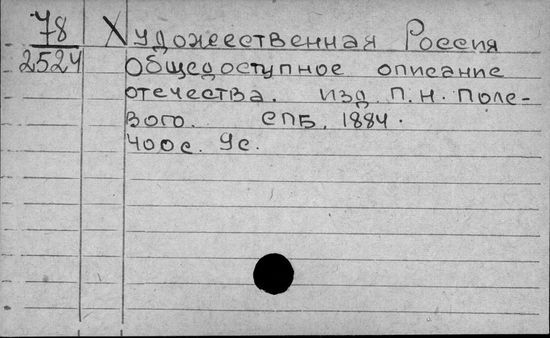 78 Художественная Россия
2524 Общедоступное описание
отечества. изд. П.Н. Поле-
вого. СПБ. 1884.
400с. 9с.